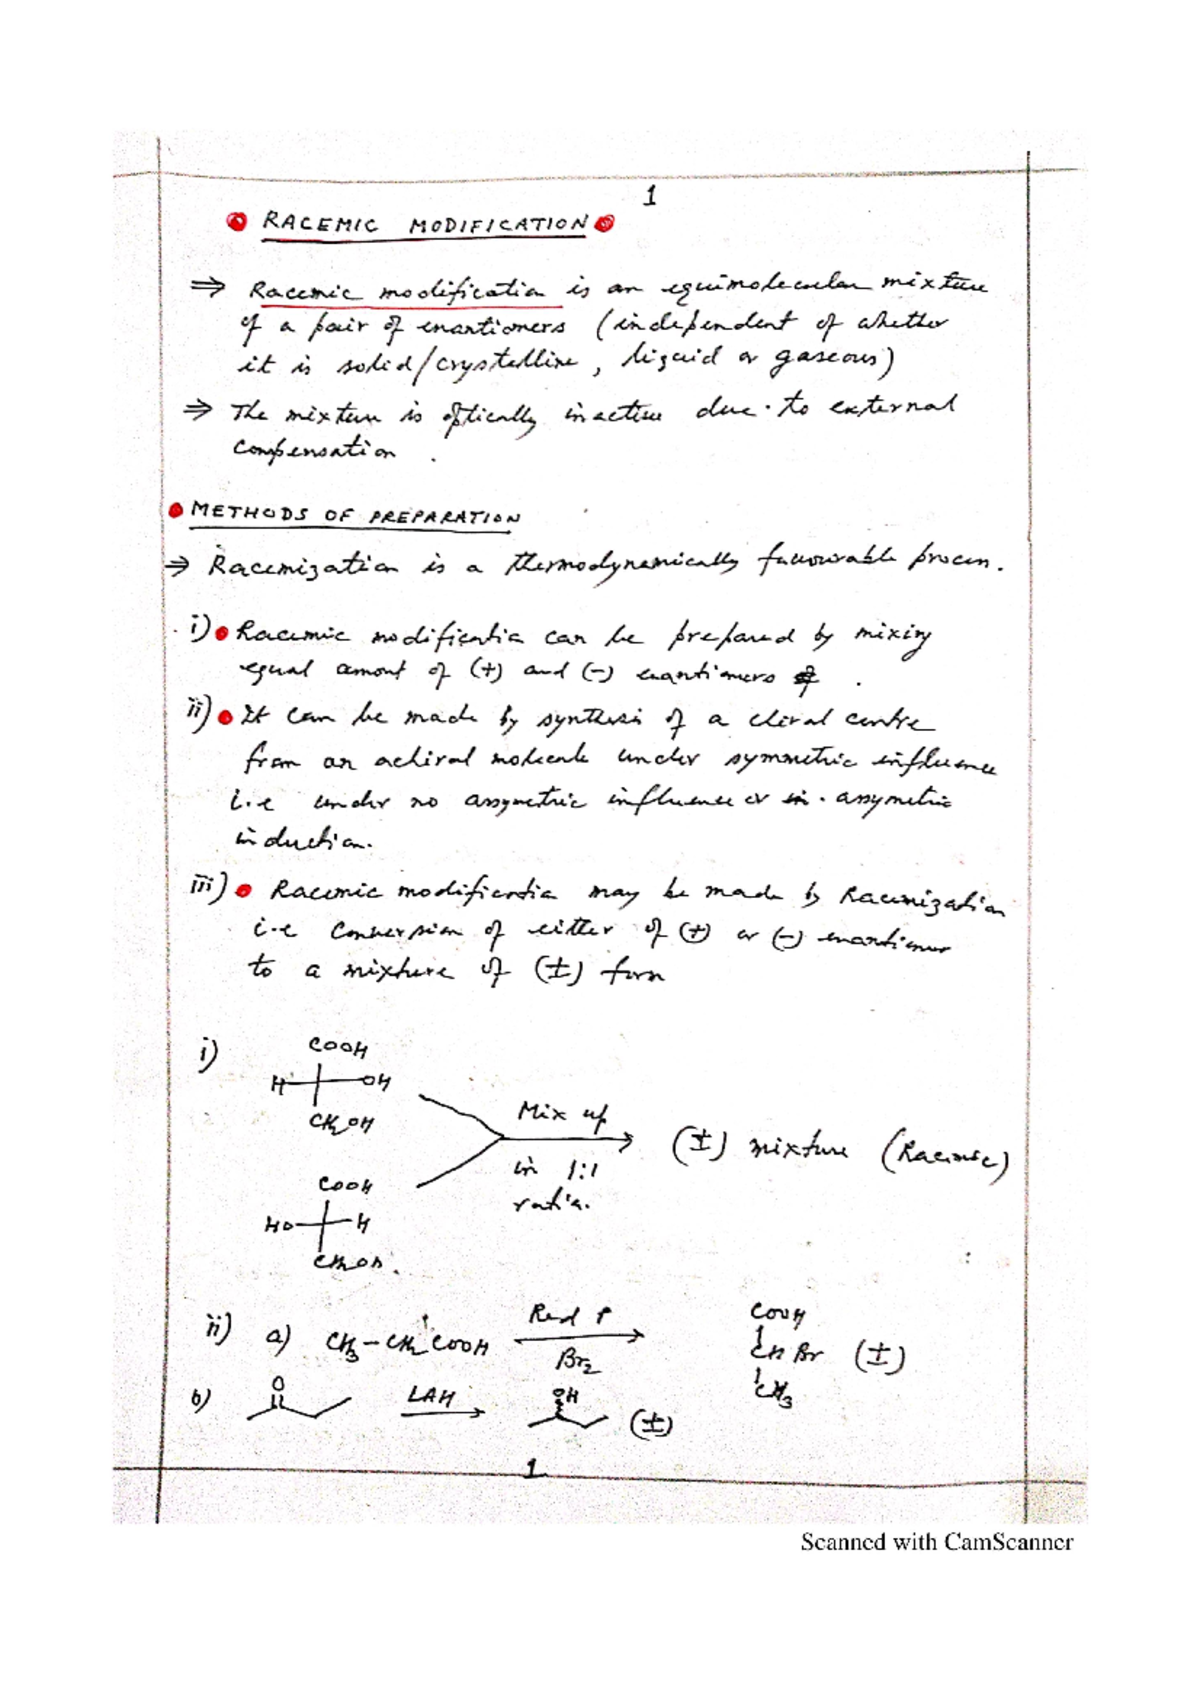 1
RACEMIC MODIFICATION
⇒ Racemic modification is an equimolecular mixture
of a pair of enantiomers (independent of whether
it is solid/crystalline, liquid or gaseous)
⇒ The mixture is optically inactive due to external
compensation.
METHODS OF PREPARATION
⇒ Racemization is a thermodynamically favourable process.
i) Racemic modification can be prepared by mixing
equal amont of (+) and (-) enantiomers.
ii) It can be made by synthesis of a chiral centre
from an achiral molecule under symmetric influence
i.e under no assymetric influence or assymetric
induction.
iii) Racemic modification may be made by Racemization
i.e conversion of either of (+) or (-) enantiomer
to a mixture of (±) form
i) COOH
H OH
CH2OH
Mix up
in 1:1
ratio.
(±) mixture (Racemic)
COOH
HO H
CH2OH.
ii) a) CH3-CH2COOH Red P Br2
COOH
CHBr (±)
CH3
b) O LAH OH (±)
1
Scanned with CamScanner